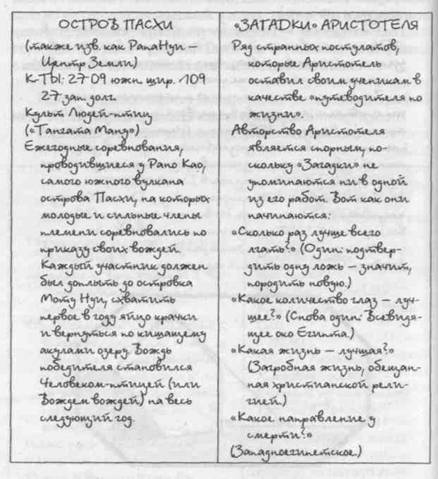 ОСТРОВ ПАСХИ
(также изв. как РапаНуи –
Центр Земли)
К-ТЫ: 27 09 южн. шир. 109
27 зап. долг.
Культ Людей-птиц
(«Тангата Ману»)
Ежегодные соревнования,
проводившиеся у Рано Као,
самого южного вулкана
острова Пасхи, на которых
молодые и сильные члены
племени соревновались по
приказу своих вождей.
Каждый участник должен
был доплыть до островка
Моту Нуи, схватить
первое в году яйцо крачки
и вернуться по кишащему
акулами озеру. Вождь
победителя становился
Человеком-птицей (или
Вождем вождей) на весь
следующий год.
«ЗАГАДКИ» АРИСТОТЕЛЯ
Ряд странных постулатов,
которые Аристотель
оставил своим ученикам в
качестве «путеводителя по
жизни».
Авторство Аристотеля
является спорным, по-
скольку «Загадки» не
упоминаются ни в одной
из его работ. Вот как они
начинаются:
«Сколько раз лучше всего
лгать?» (Один: подтвер-
дить одну ложь – значит,
породить новую.)
«Какое количество глаз – луч-
шее?» (Снова один: Всевидя-
щее око Египта.)
«Какая жизнь – лучшая?»
(Загробная жизнь, обещан-
ная христианской рели-
гией.)
«Какое направление у
смерти?»
(Западноегипетское.)